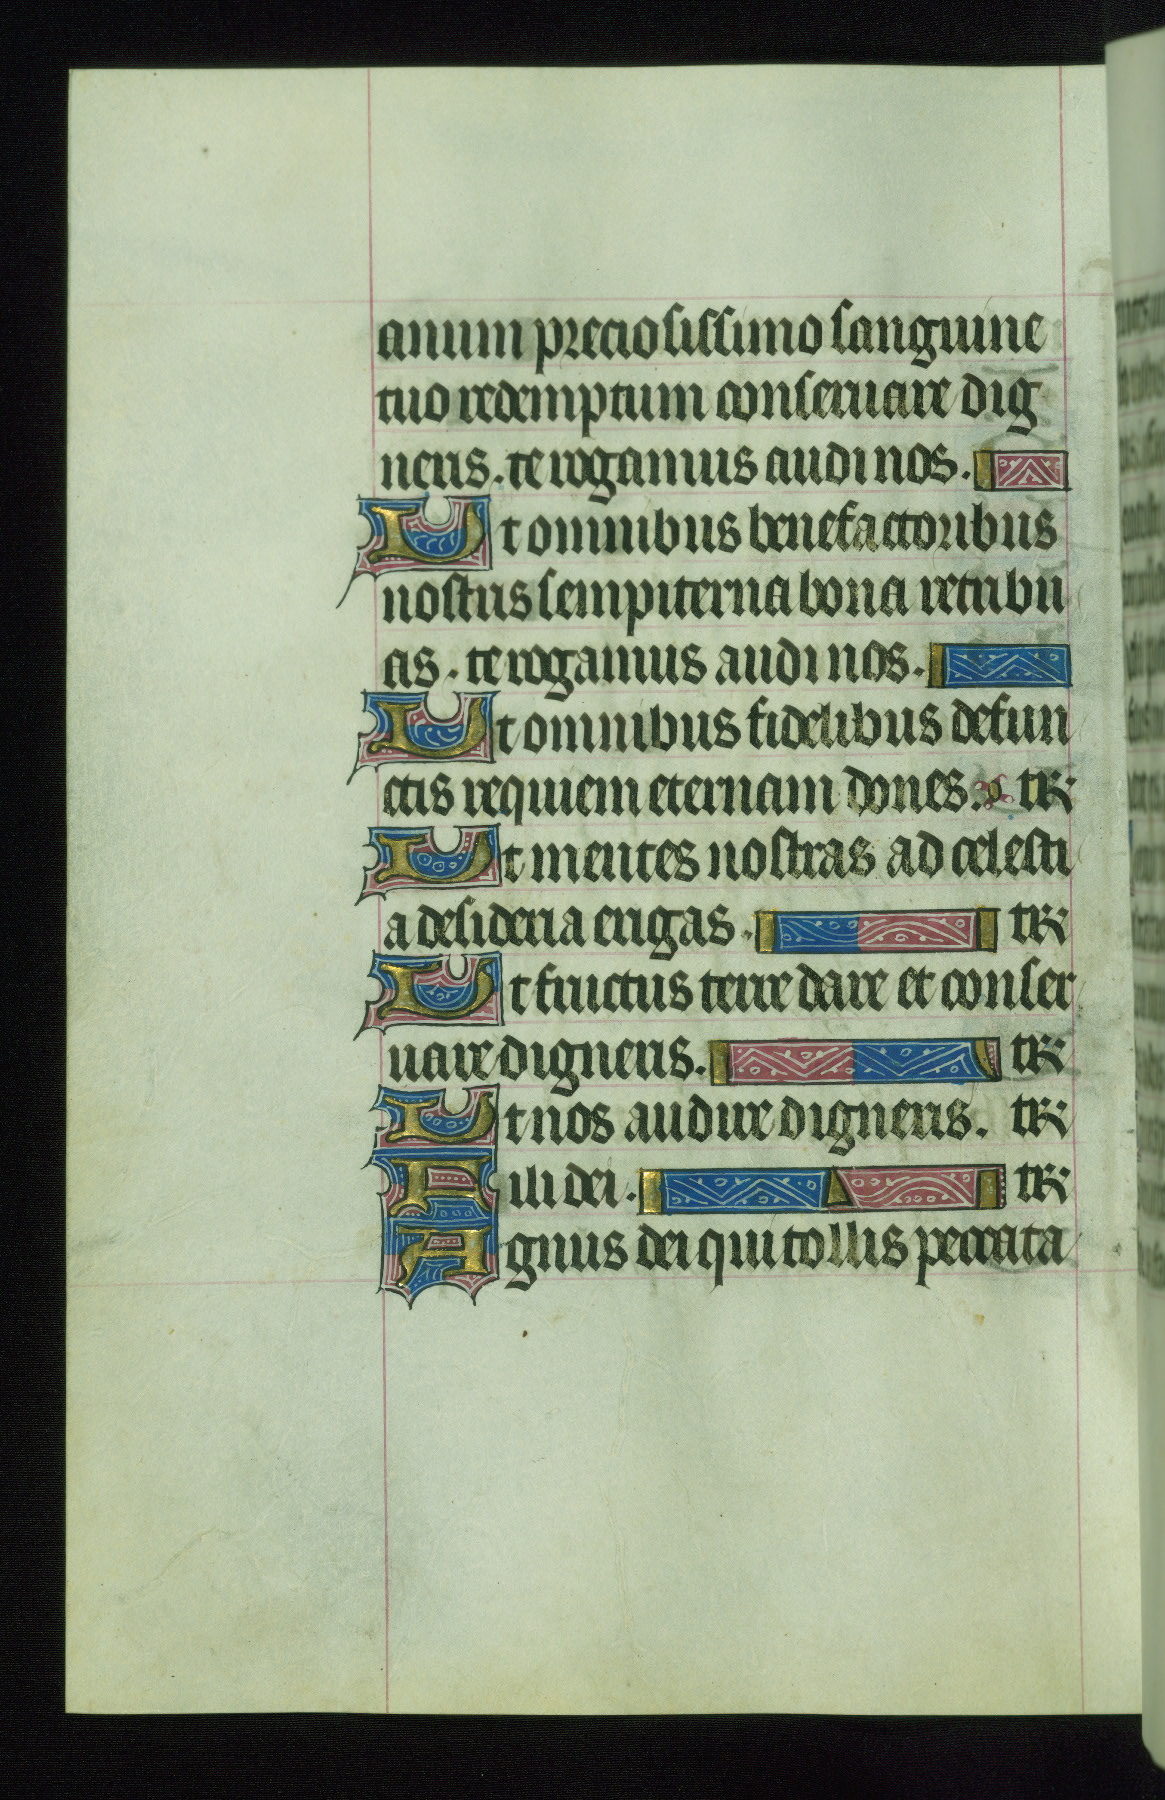 anum preciosissimo sanguine
tuo redemptum conseruare dig
neris. te rogamus audi nos.
Ut omnibus benefactoribus
nostris sempiterna bona retribu
as. te rogamus audi nos.
Ut omnibus fidelibus defun
ctis requiem eternam dones. tR
Ut mentes nostras ad celesti
a desideria erigas. tR
Ut fructus terre dare et conser
uare digneris. tR
Ut nos audire digneris. tR
Fili dei. tR
Agnus dei qui tollis peccata